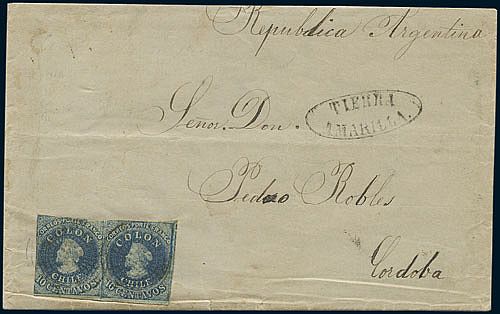 Republica Argentina
TIERRA
AMARILLA.
Señor. Don.
Pedro Robles
Cordoba
CORREOS PORTE FRANCO
COLON
CHILE
10 CENTAVOS
CORREOS PORTE FRANCO
COLON
CHILE
10 CENTAVOS